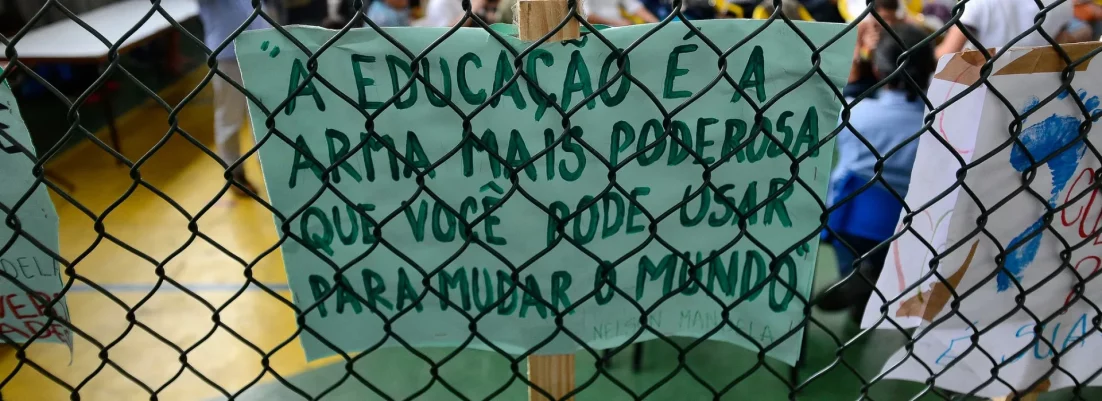 "A EDUCAÇÃO É A
ARMA MAIS PODEROSA
QUE VOCÊ PODE USAR
PARA MUDAR O MUNDO"
NELSON MANDELA
E SUA